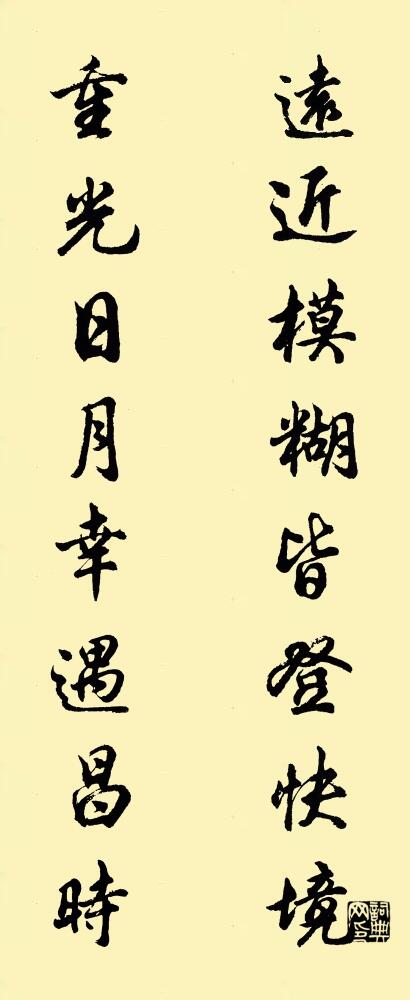 遠近模糊皆登快境
重光日月幸遇昌時
詞典網印